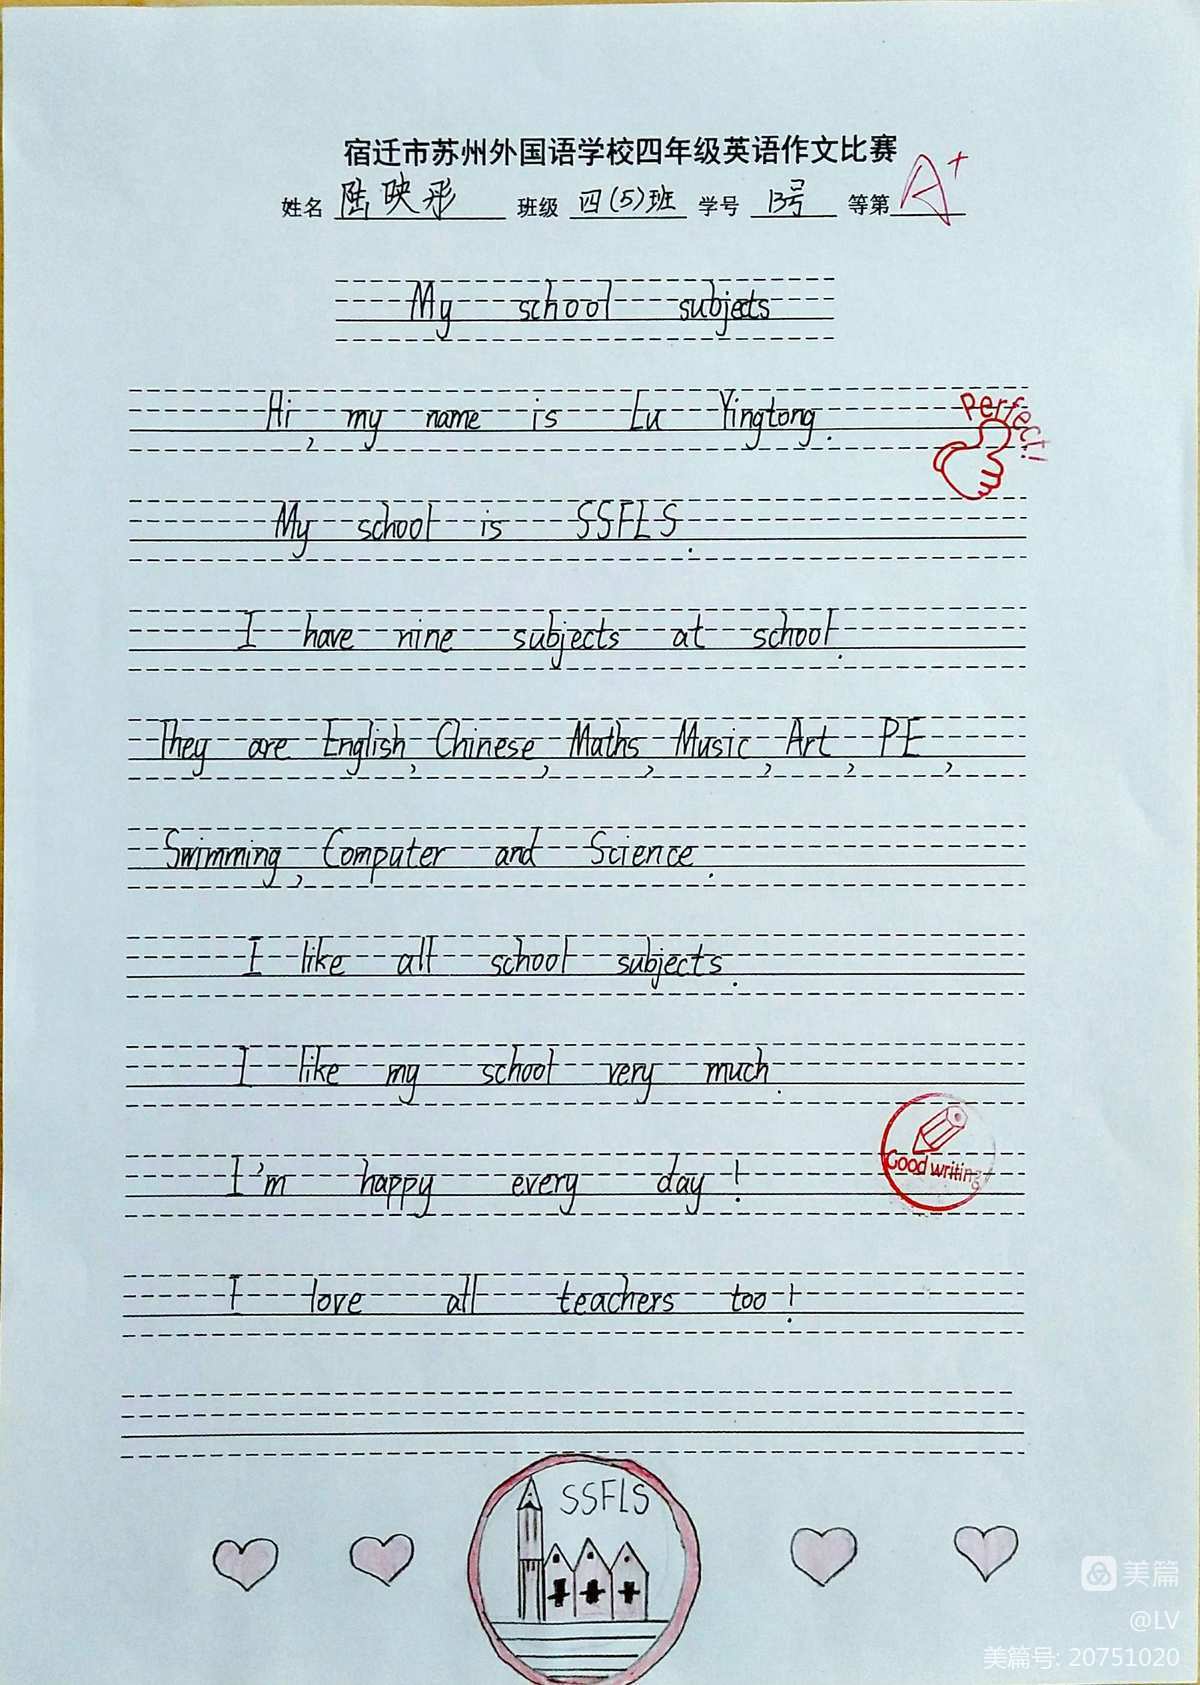 宿迁市苏州外国语学校四年级英语作文比赛
姓名 陆映彤 班级 四(5)班 学号 13号 等第 A+
My school subjects
Hi, my name is Lu Yingtong.
Perfect!
My school is SSFLS.
I have nine subjects at school.
They are English, Chinese, Maths, Music, Art, PE,
Swimming, Computer and Science.
I like all school subjects.
I like my school very much.
I'm happy every day!
Good writing!
I love all teachers too!
SSFLS
美篇
@LV
美篇号: 20751020